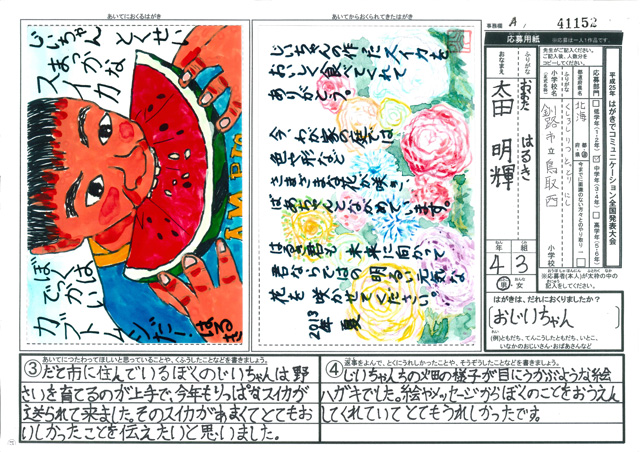 あいてにおくるはがき
じいちゃん とくせい
まっかな
スイカ
ぼくは
でっかい
カブトムシだー!
はるき
あいてからおくられてきたはがき
じいちゃんの作ったスイカを
おいしく食べてくれて
ありがとう。
今、わが家の庭では
色や形など
さまざまな花が咲き、
ばあちゃんとながめています。
はるき君も未来に向かって
君ならではの明るい元気な
花を咲かせてください。
2013年 夏
事務欄 A
41152
応募用紙
※応募は一人1作品です。
平成25年 はがきでコミュニケーション全国発表大会
先生がご記入ください。
ご記入後、人数分を
コピーしてください。
応募部門
低学年(1・2年)
中学年(3・4年)
高学年(5・6年)
今までに面識のない方々とのやり取り
都道府県名
北海
都道府県
ふりがな
くしろしりつとっとりにし
小学校名
(正式名称)
釧路市立鳥取西
小学校
※応募者(本人)が太枠の中の
記入をしてください。
ふりがな
おおた はるき
おなまえ
太田 明輝
年 組
4 3
男・女
はがきは、だれにおくりましたか?
(おじいちゃん)
(例)ともだち、てんこうしたともだち、いとこ、
いなかのおじいさん・おばあさんなど
あいてにつたわってほしいと思っていることや、くふうしたことなどを書きましょう。
③だて市に住んでいるぼくのじいちゃんは、野
さいを育てるのが上手で、今年もりっぱなスイカが
送られて来ました。そのスイカがあまくてとてもお
いしかったことを伝えたいと思いました。
返事をよんで、とくにうれしかったことや、そうぞうしたことなどを書きましょう。
④じいちゃんちの畑の様子が目にうかぶような絵
ハガキでした。絵やメッセージからぼくのことをおうえん
してくれていてとてもうれしかったです。